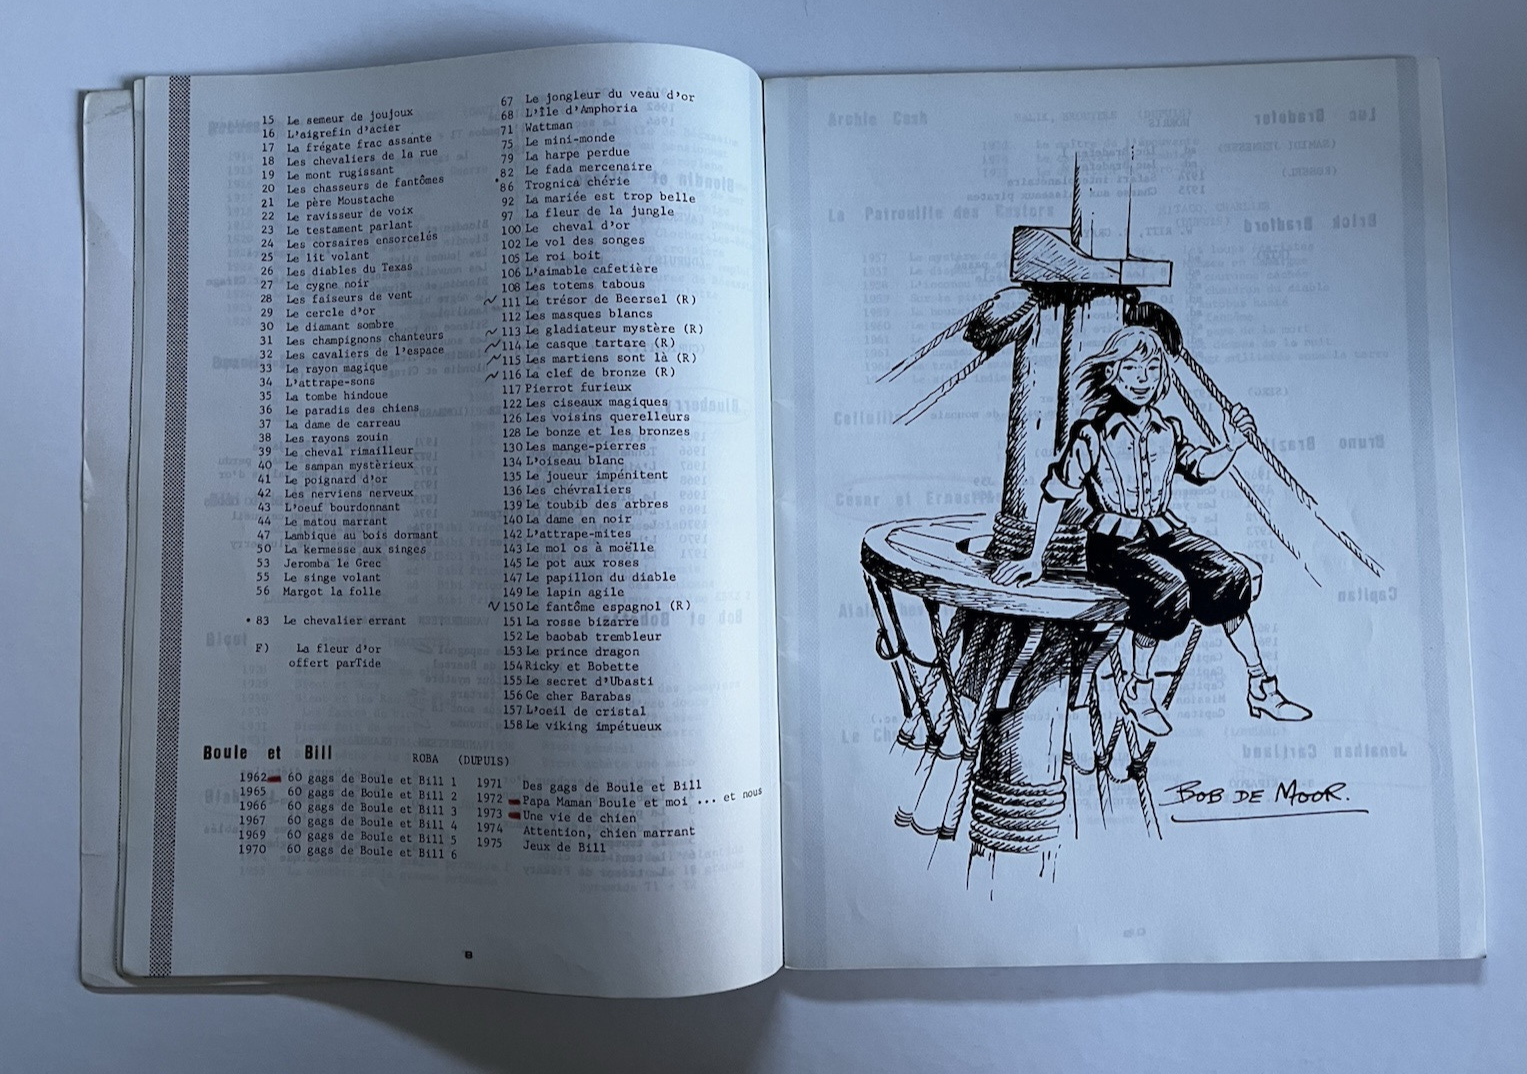 15 Le semeur de joujoux
16 L'aigrefin d'acier
17 La frégate frac assante
18 Les chevaliers de la rue
19 Le mont rugissant
20 Les chasseurs de fantômes
21 Le père Moustache
22 Le ravisseur de voix
23 Le testament parlant
24 Les corsaires ensorcelés
25 Le lit volant
26 Les diables du Texas
27 Le cygne noir
28 Les faiseurs de vent
29 Le cercle d'or
30 Le diamant sombre
31 Les champignons chanteurs
32 Les cavaliers de l'espace
33 Le rayon magique
34 L'attrape-sons
35 La tombe hindoue
36 Le paradis des chiens
37 La dame de carreau
38 Les rayons zouin
39 Le cheval rimailleur
40 Le sampan mystèrieux
41 Le poignard d'or
42 Les nerviens nerveux
43 L'oeuf bourdonnant
44 Le matou marrant
47 Lambique au bois dormant
50 La kermesse aux singes
53 Jeromba le Grec
55 Le singe volant
56 Margot la folle
• 83 Le chevalier errant
F) La fleur d'or
offert parTide
67 Le jongleur du veau d'or
68 L'Île d'Amphoria
71 Wattman
75 Le mini-monde
79 La harpe perdue
82 Le fada mercenaire
•86 Trognica chérie
92 La mariée est trop belle
97 La fleur de la jungle
100 Le cheval d'or
102 Le vol des songes
105 Le roi boit
106 L'aimable cafetière
108 Les totems tabous
111 Le trésor de Beersel (R)
112 Les masques blancs
113 Le gladiateur mystère (R)
114 Le casque tartare (R)
115 Les martiens sont là (R)
116 La clef de bronze (R)
117 Pierrot furieux
122 Les ciseaux magiques
126 Les voisins querelleurs
128 Le bonze et les bronzes
130 Les mange-pierres
134 L'oiseau blanc
135 Le joueur impénitent
136 Les chévraliers
139 Le toubib des arbres
140 La dame en noir
142 L'attrape-mites
143 Le mol os à moëlle
145 Le pot aux roses
147 Le papillon du diable
149 Le lapin agile
150 Le fantôme espagnol (R)
151 La rosse bizarre
152 Le baobab trembleur
153 Le prince dragon
154 Ricky et Bobette
155 Le secret d'Ubasti
156 Ce cher Barabas
157 L'oeil de cristal
158 Le viking impétueux
Boule et Bill ROBA (DUPUIS)
1962 60 gags de Boule et Bill 1
1965 60 gags de Boule et Bill 2
1966 60 gags de Boule et Bill 3
1967 60 gags de Boule et Bill 4
1969 60 gags de Boule et Bill 5
1970 60 gags de Boule et Bill 6
1971 Des gags de Boule et Bill
1972 Papa Maman Boule et moi ... et nous
1973 Une vie de chien
1974 Attention, chien marrant
1975 Jeux de Bill
8
BOB DE MOOR.